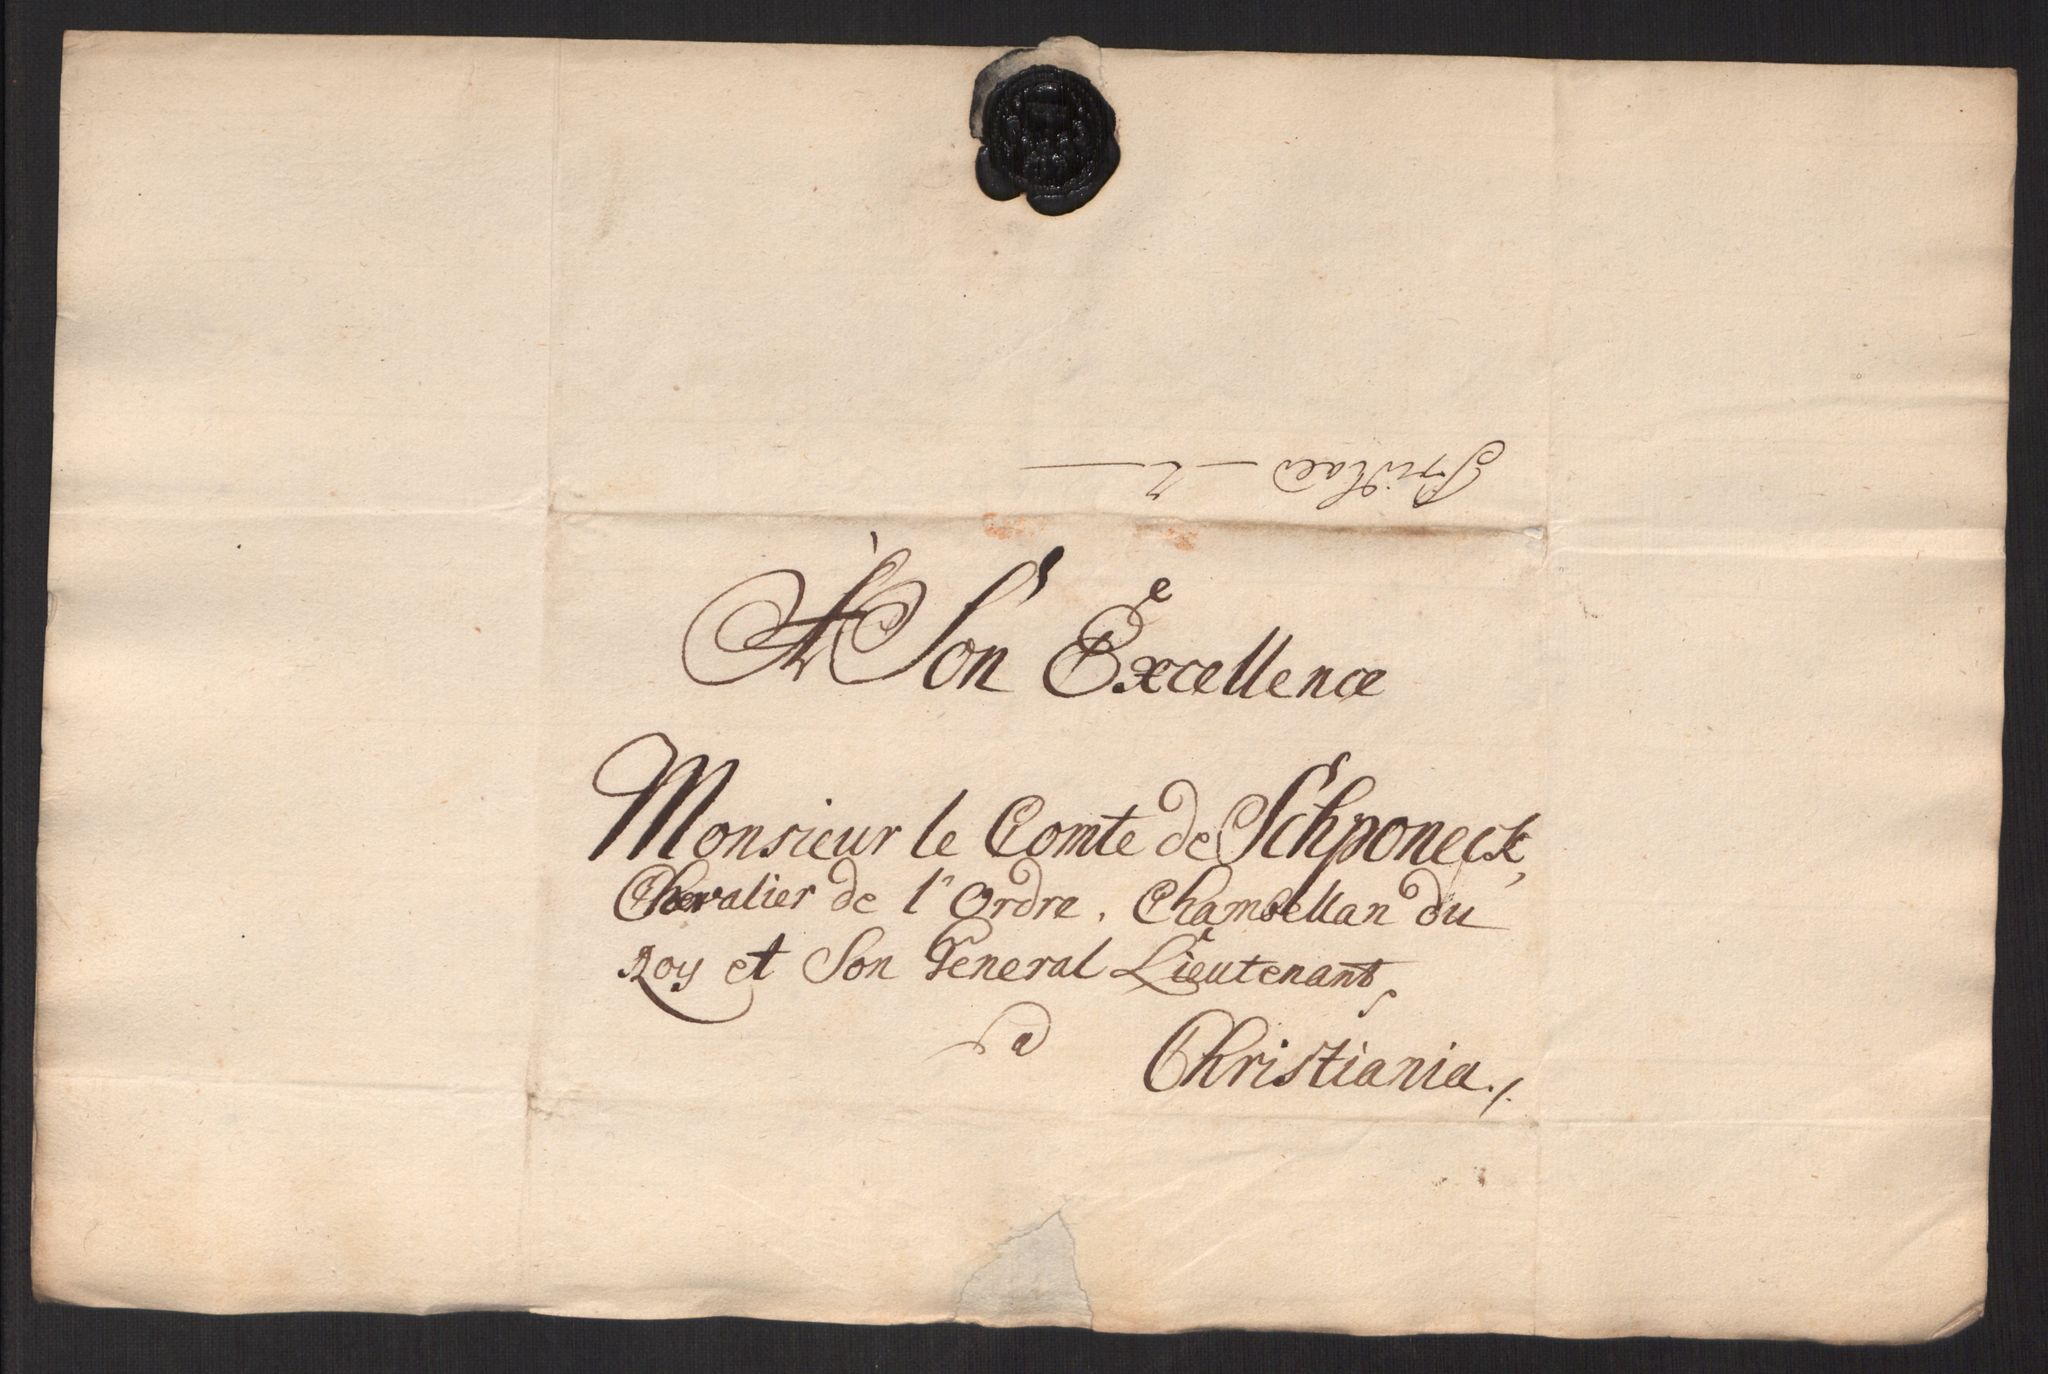 A Son Excellence
Monsieur le Comte de Schponeck,
Chevalier de l'Ordre, Chambellan du
Roy et Son General Lieutenant,
a
Christiania./.